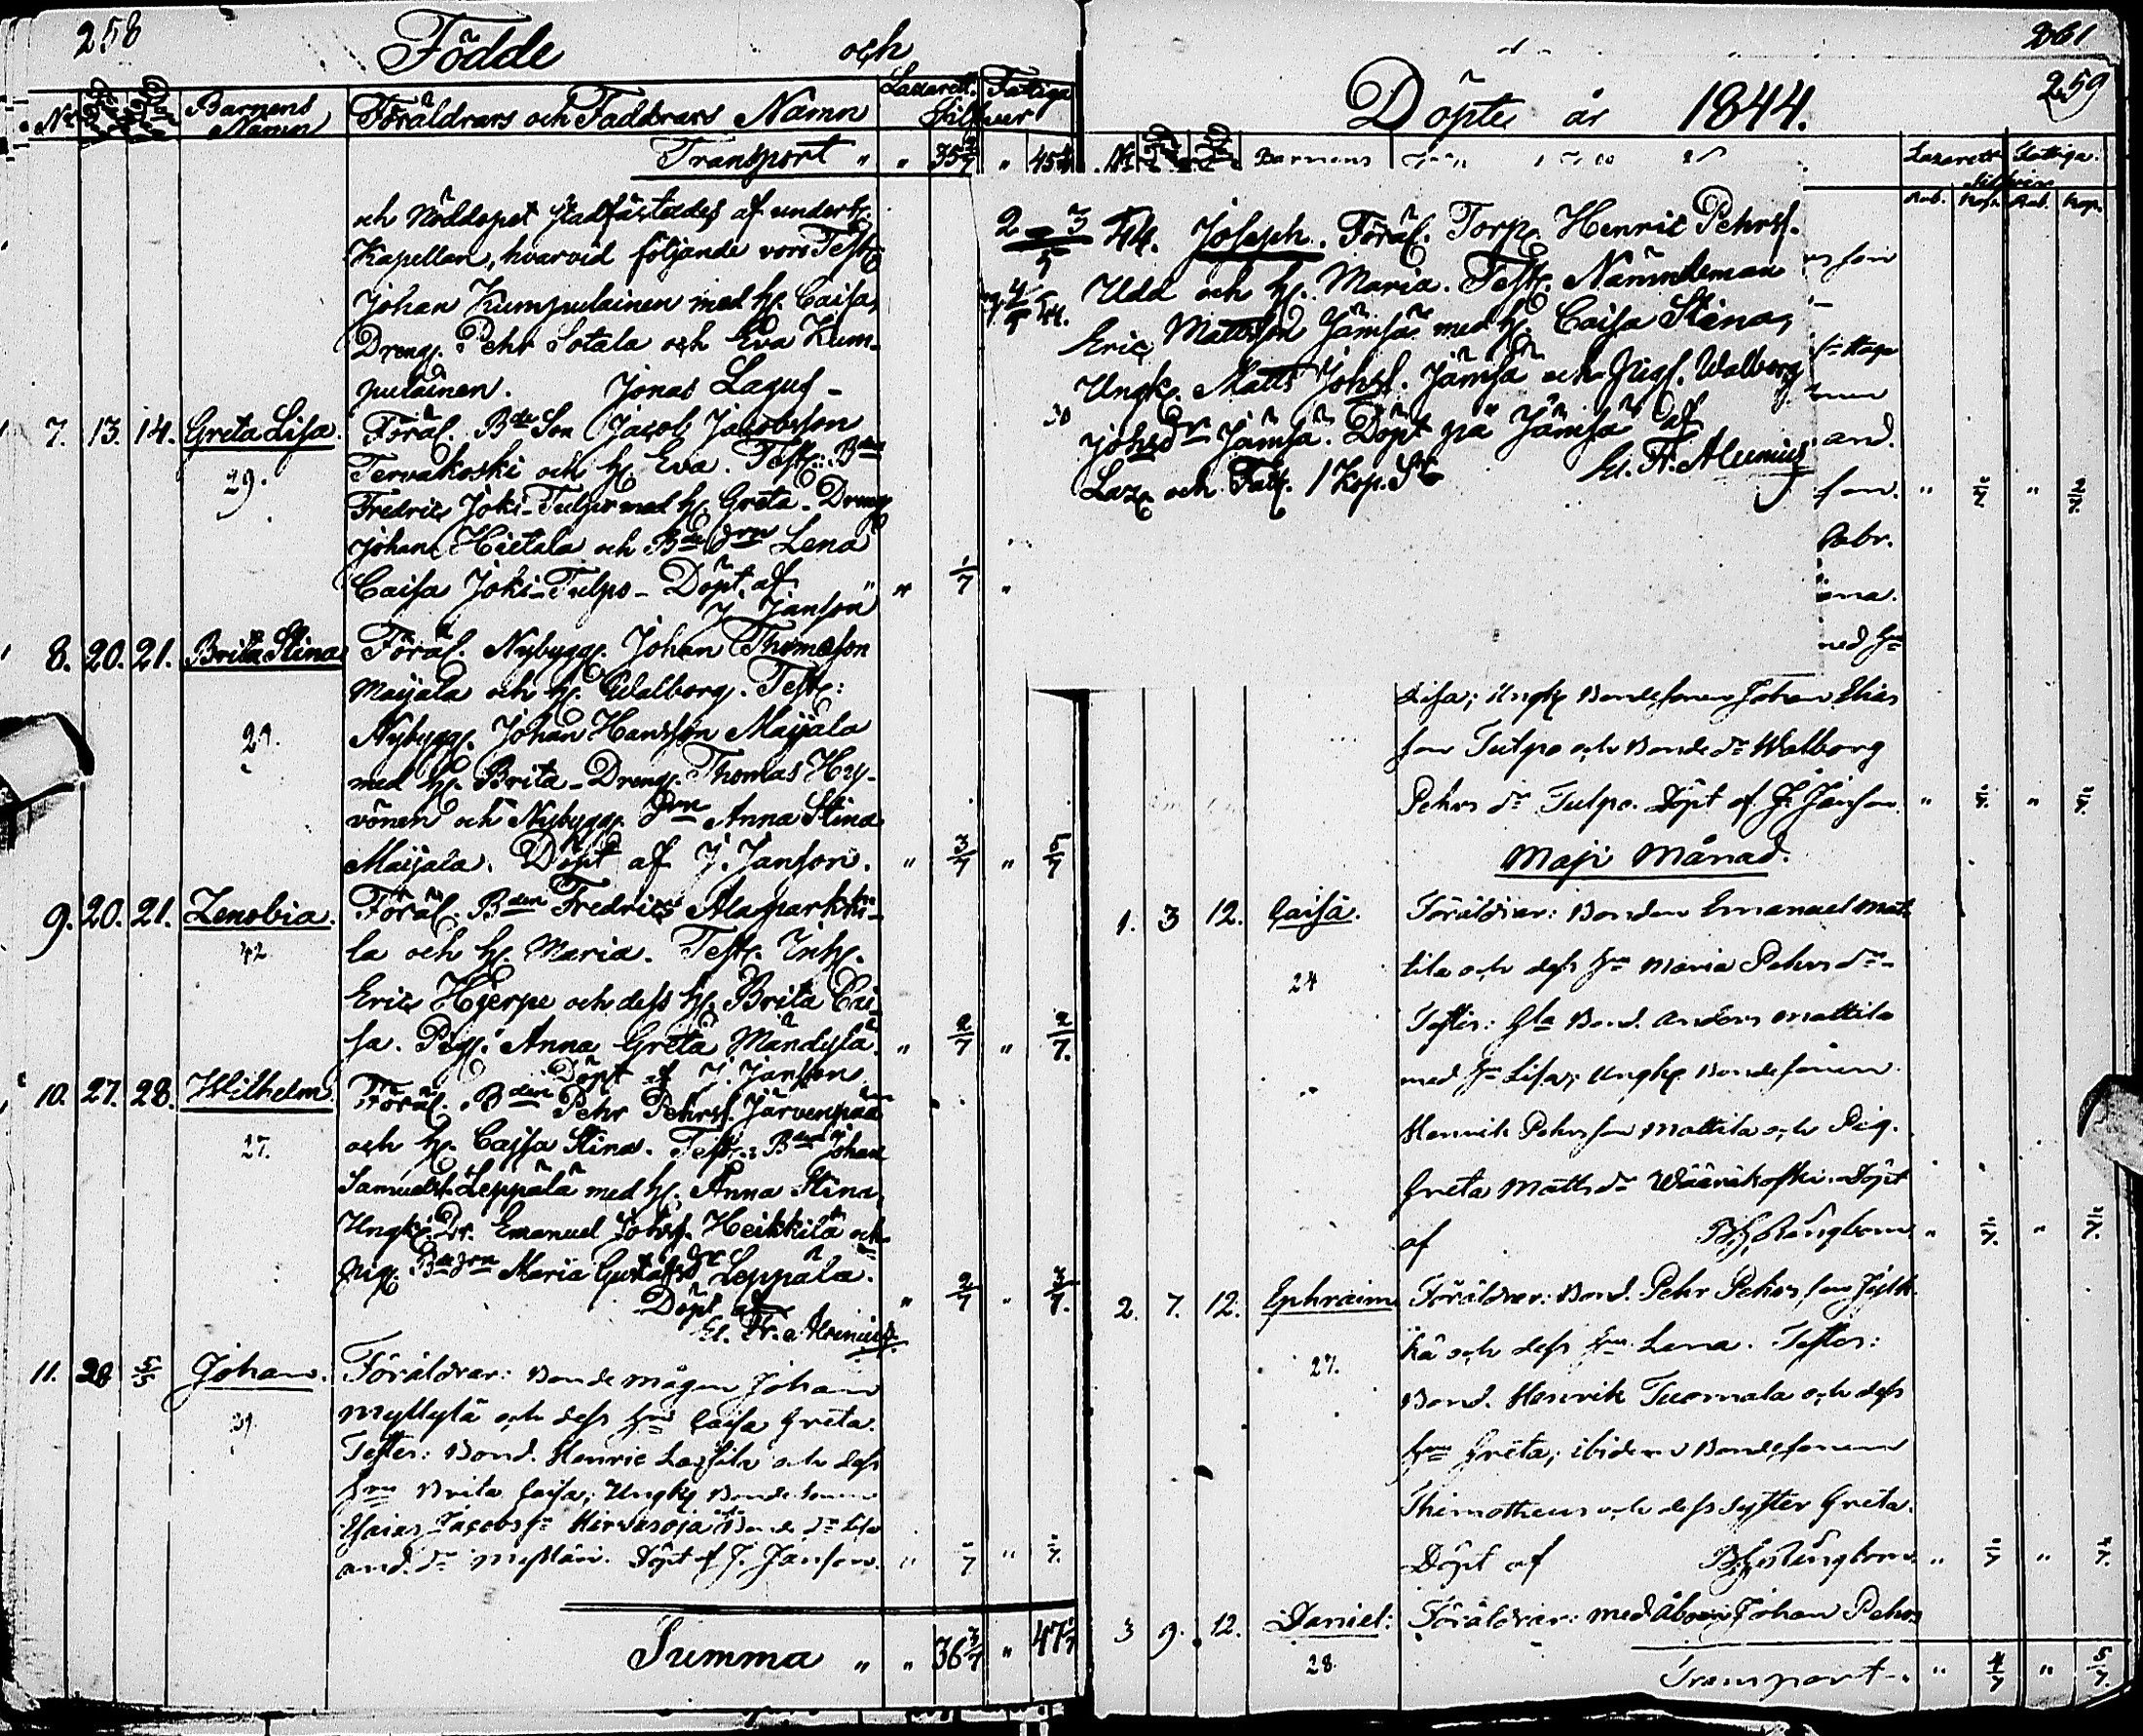 258
Födde och
No Barnens Namn Föräldrars och Faddrars Namn Lazarett. Fattiga
Silfver
Transport " " 35 " 45
och Nöddopet stadfästades af undert.
Kapellan, hvarvid följande voro Test:
Johan Kumpulainen med h. Caisa,
Dreng. Pehr Sotala och Eva Kum-
pulainen. Jonas Lagus -
7. 13. 14. Greta Lisa. Föräl. Bde Son Jacob Jakobsson
Tervakoski och h. Eva. Test: Bden
29.
Fredric Joki-Tulpo med h. Greta. Dreng
Johan Hietala och Bde drn Lena
Caisa Joki-Tulpo - Döpt af " 1/7 "
J. Janson
8. 20. 21. Brita Stina Föräl. Nybygg. Johan Thomasson
Maijala och h. Walborg. Test:
29. Nybygg. Johan Hansson Maijala
med h. Brita - Dreng. Thomas Hy-
vönen och Nybygg. drn Anna Stina
Maijala. Döpt af J. Janson. " 3/7 " 5/7
9. 20. 21. Zenobia. Föräl. Bden Fredric Alaparkki-
42 la och h. Maria. Test. Inh.
Eric Hjerpe och dess h. Brita Cai-
sa. Pig. Anna Greta Mändylä. " 2/7 " 2/7.
Döpt af J. Janson
10. 27. 28. Wilhelm Föräl. Bden Pehr Pehrss. Järvenpää
27. och h. Cajsa Stina. Test: Bden Johan
Samuelss. Leppälä med h. Anna Stina,
Ungk. Dr. Emanuel Johss. Heikkilä och
pig. Bde drn Maria Gustafsdr Leppälä.
Döpt af " 2/7 " 3/7.
El. Fr. Alcenius
11. 28 5/5 Johan. Föräldrar: Bonde mågen Johan
Myllylä och dess hu Caisa Greta.
29. Testes: Bond. Henric Lassila och dess
hu Brita Caisa; Ungk Bonde sonen
Esaias Jacobs sn Hirvasoja Bonde dr Lisa
And. dr Myllär. Döpt af J. Janson. " " /7.
Summa " " 36 3/7 " 47
261
259
Döpte år 1844.
No Barnens
Lazarett Fattiga.
Silfver
Rub. Kop. Rub. Kop.
2 3/5 44. Joseph. Föräl. Torp. Henric Pehrss.
4/5 44. Udd och h. Maria. Test. Nämndeman
Eric Mattsson Jämsä med h. Caisa Stina,
Ungk. Matts Johss. Jämsä och pig. Walborg
30 Johsdr Jämsä. Döpt på Jämsä af
Laz. och Fatt. 1 Kop. St El. Fr. Alcenius
son
and.
son.
Gabr.
med hu
Lisa; Ungk Bondesonen Johan Elias
son Tulpo och Bonde dr Walborg
Pehrs dr Tulpo. Döpt af J. Janson. " "
Maji Månad.
1. 3 12. Caisa. Föräldrar: Bonden Emanuel Mat-
24 tila och dess hu Maria Pehrs dr -
Testes: Gla Bond. Anders Mattila
med hu Lisa; Ungk. Bondesonen
Henrik Pehrsson Mattila och Pig.
Greta Matts dr Wäänikoski. Döpt
af B.H. Stüngbom. " "
2. 7. 12. Ephraim Föräldrar: Bond. Pehr Pehrs son Jylk-
27. kä och dess hu Lena. Testes:
Bond. Henrik Tuomala och dess
hu Greta; ibidem Bondesonen
Thimotheus och dess syster Greta.
Döpt af B.H. Stüngbom. " "
3 9. 12. Daniel: Föräldrar: Medåboen Johan Pehrs
28.
Transport. " 4/7 " 5/7.